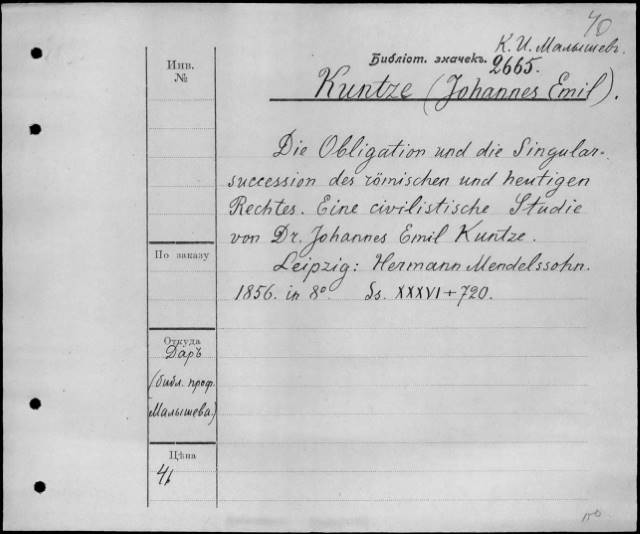 40
К. И. Малышев.
Библіот. значекъ. 2665.
Kuntze (Johannes Emil).
Инв.
№
Die Obligation und die Singular-
succession des römischen und heutigen
Rechtes. Eine civilistische Studie
von Dr. Johannes Emil Kuntze.
По заказу
Leipzig: Hermann Mendelssohn.
1856. in 8º. Ss. XXXVI + 720.
Откуда
Даръ
(библ. проф.
Малышева)
Цѣна